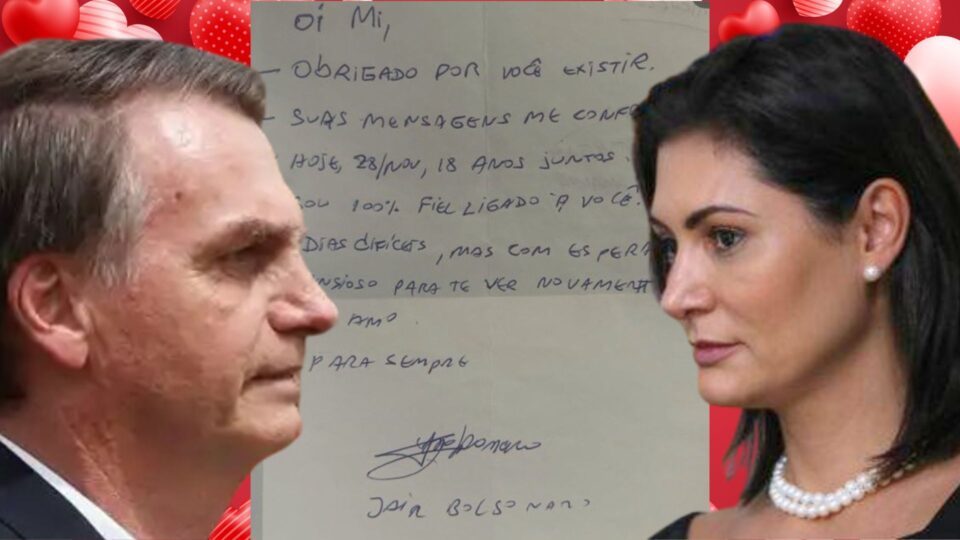 Oi Mi,
- OBRIGADO POR VOCÊ EXISTIR.
- SUAS MENSAGENS ME CONFO
HOJE, 28/NOV, 18 ANOS JUNTOS.
SOU 100% FIEL LIGADO À VOCÊ.
DIAS DIFÍCEIS, MAS COM ESPERA
NSIOSO PARA TE VER NOVAMENT
AMO.
PARA SEMPRE
JAIR BOLSONARO